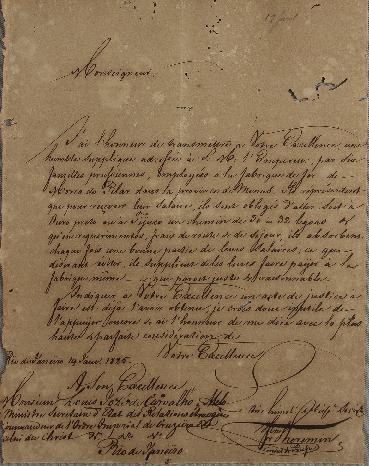 Monseigneur
J'ai l'honneur de transmettre à Votre Excellence une
humble supplique adressée à S. M. l'Empereur, par six
familles prussiennes, employées à la fabrique de fer de
Morro do Pilar dans la province de Minas. Ils représentent
que pour recevoir leur salaire, ils sont obligés d'aller soit à
Ouro preto ou à Tejuco un chemin de 30 à 32 lagoas et
qu'en frais de route et de séjour, ils absorbent
chaque fois une bonne partie de leurs salaires, ce que
éviter, ils supplient de les faire payer à la
fabrique même ce qui parait juste & raisonnable.
Indiquer à Votre Excellence un acte de justice à
faire est déjà l'avoir obtenu, je crois donc inutile de
l'appuyer encore & ai l'honneur de me dire avec la plus
haute & parfaite considération de
Votre Excellence
Rio de Janeiro 19 1825
A Son Excellence
Monsieur Louis José de Carvalho & Mello
Ministre Secretaire d'Etat des Relations
de l'Ordre Imperial du Cruzeiro &
du Christ
Rio de Janeiro
très humble
Theremin